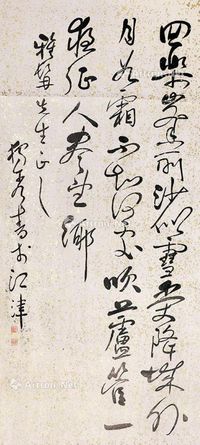 回樂峯前沙似雪受降城外
月如霜不知何處吹蘆管一
夜征人盡望鄉
先生正之
獨秀書於江津
Artron.Net